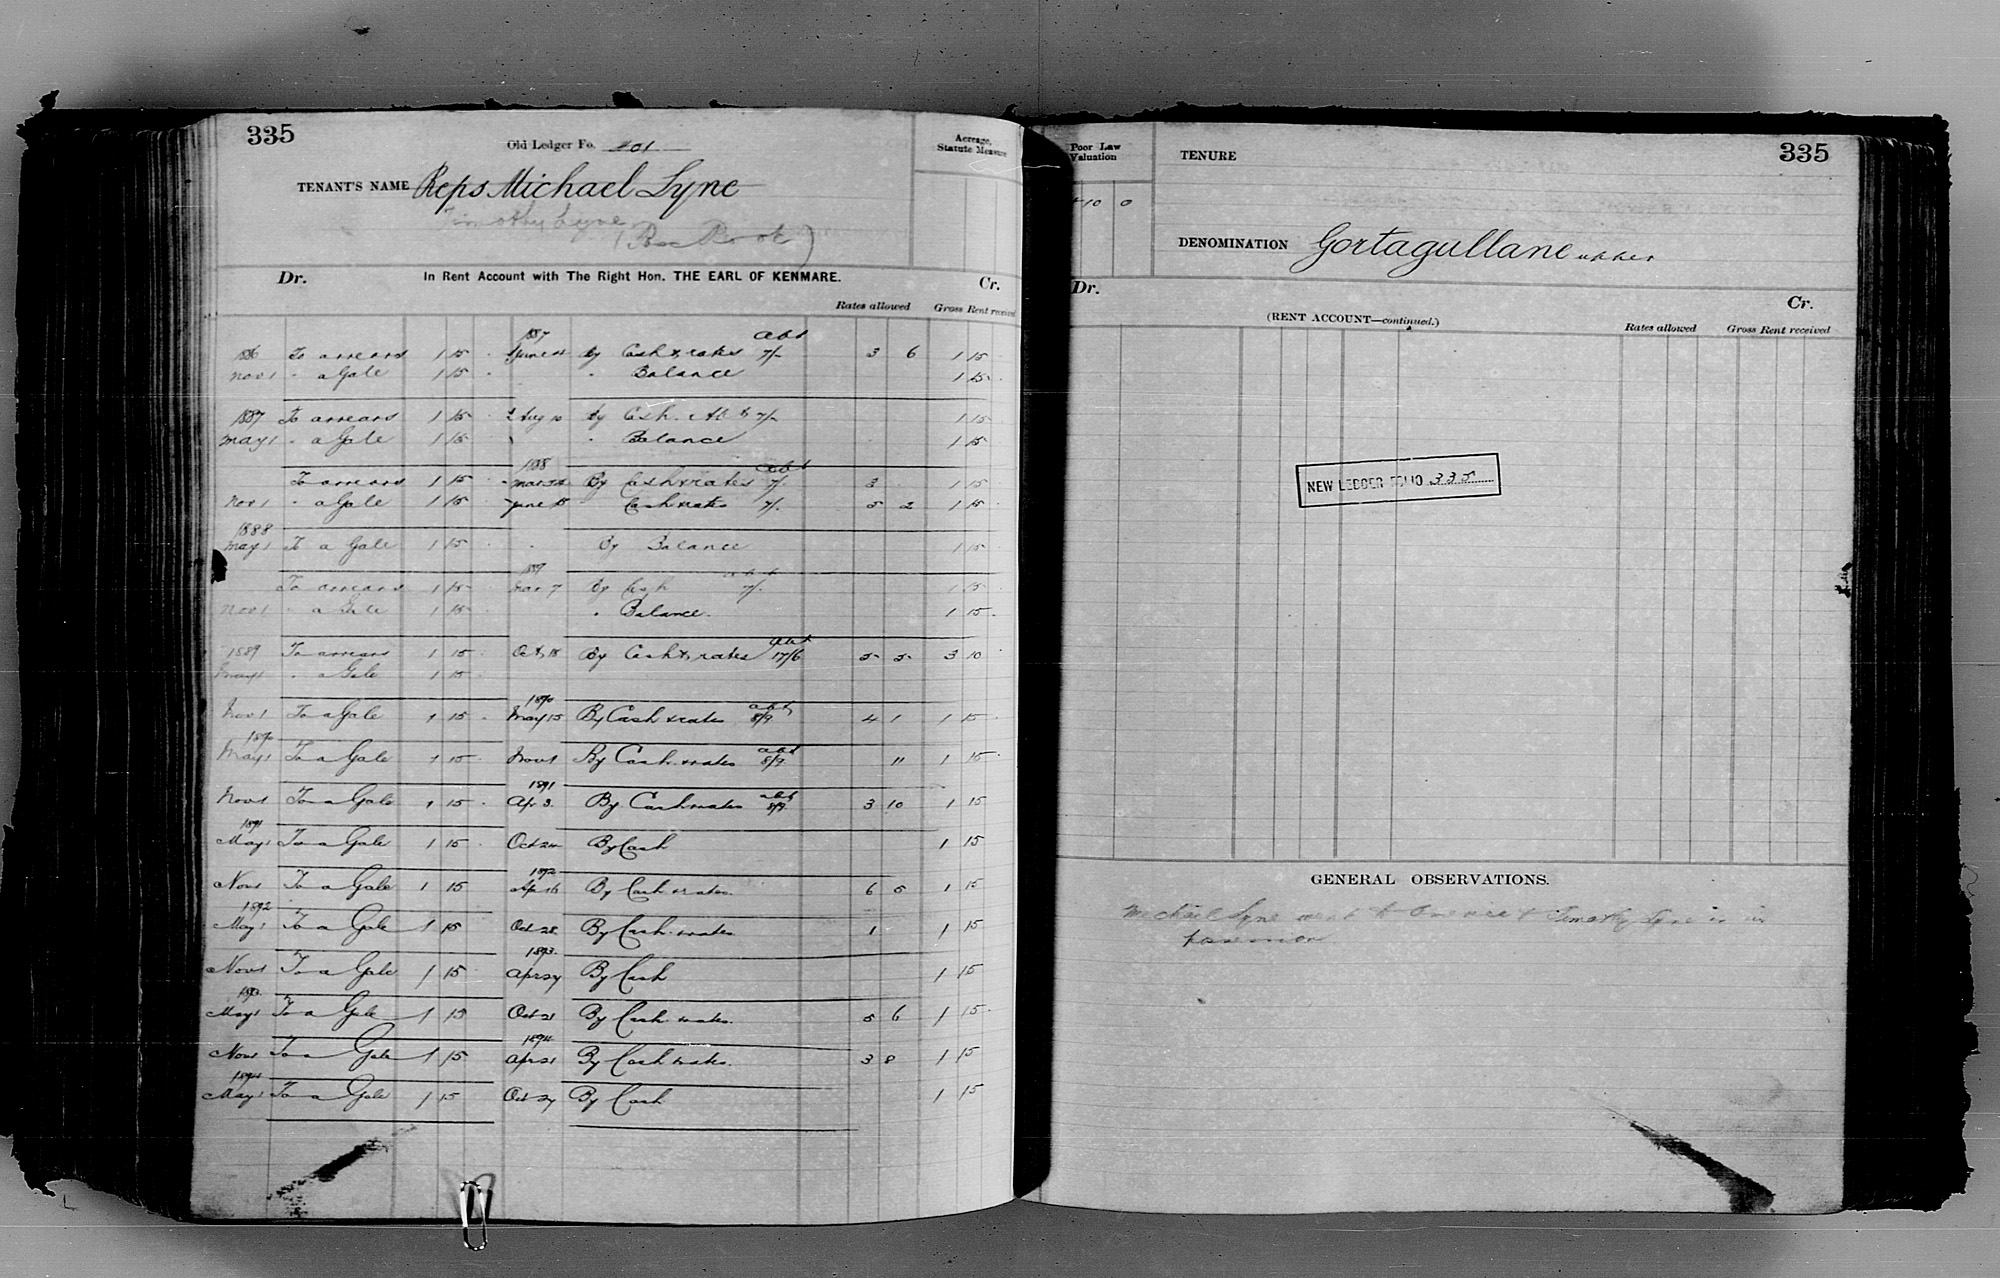 335
Old Ledger Fo. 201
Acreage, Statute Measure
TENANT'S NAME Reps Michael Lyne
Timothy Lyne
Dr. In Rent Account with The Right Hon. THE EARL OF KENMARE. Cr.
Rates allowed Gross Rent received
1887 abt
1886 To arrears 1 15 June By Cash & rates 7/- 3 6 1 15
Nov 1 " a Gale 1 15 " Balance 1 15
1887 To arrears 1 15 Aug 10 By Cash Abt 7/- 1 15
May 1 " a Gale 1 15 " Balance 1 15
1888 abt
To arrears 1 15 Mar By Cash & rates 7/- 3 1 15
Nov 1 " a Gale 1 15 June 15 Cash & rates 7/- 5 2 1 15
1888
May 1 To a Gale 1 15 By Balance 1 15
1889 abt
To arrears 1 15 Mar 7 By Cash 7/- 1 15
Nov 1 " a Gale 1 15 " Balance 1 15
abt
1889 To arrears 1 15 Oct 18 By Cash & rates 17/6 5 5 3 10
May 1 " a Gale 1 15
1890 abt
Nov 1 To a Gale 1 15 May 15 By Cash & rates 8/9 4 1 1 15
1890 abt
May 1 To a Gale 1 15 Nov 1 By Cash & rates 8/9 11 1 15
1891 abt
Nov 1 To a Gale 1 15 Apr 3 By Cash & rates 8/9 3 10 1 15
1891
May 1 To a Gale 1 15 Oct 24 By Cash 1 15
1892
Nov 1 To a Gale 1 15 Apr 16 By Cash & rates 6 5 1 15
1892
May 1 To a Gale 1 15 Oct 28 By Cash & rates 1 1 15
1893
Nov 1 To a Gale 1 15 Apr 27 By Cash 1 15
1893
May 1 To a Gale 1 15 Oct 21 By Cash & rates 5 6 1 15
1894
Nov 1 To a Gale 1 15 Apr 21 By Cash & rates 3 8 1 15
1894
May 1 To a Gale 1 15 Oct 27 By Cash 1 15
Poor Law Valuation
10 0
TENURE
335
DENOMINATION Gortagullane upper
Dr. Cr.
(RENT ACCOUNT—continued.)
Rates allowed Gross Rent received
NEW LEDGER FOLIO 335
GENERAL OBSERVATIONS.
Michael Lyne went to America & Timothy Lyne is in
possession